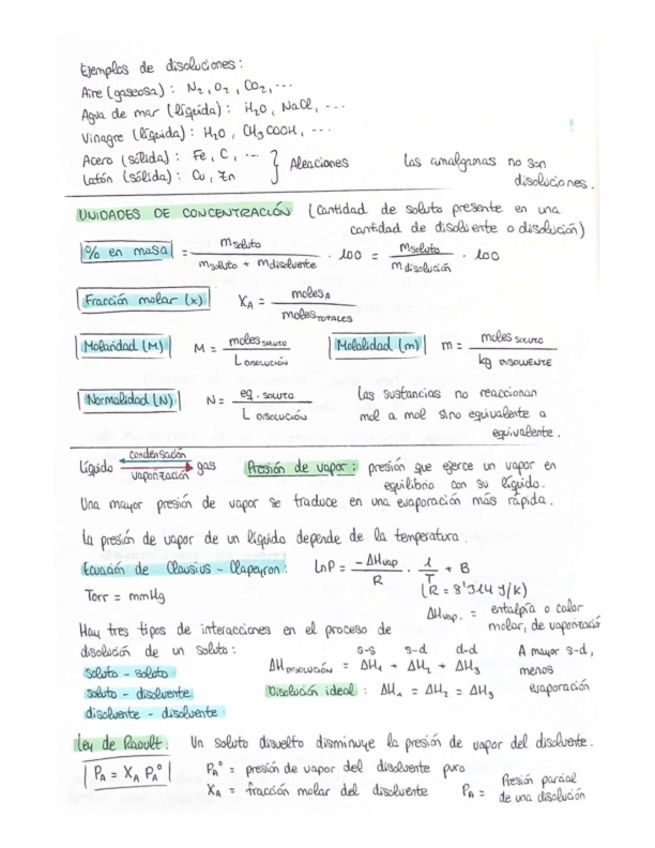 Ejemplos de disoluciones:
Aire (gaseosa): N₂, O₂, CO₂, ...
Agua de mar (líquida): H₂O, NaCl, ...
Vinagre (líquida): H₂O, CH₃COOH, ...
Acero (sólida): Fe, C, ...
Latón (sólida): Cu, Zn
} Aleaciones
Las amalgamas no son
disoluciones.
UNIDADES DE CONCENTRACIÓN (Cantidad de soluto presente en una
cantidad de disolvente o disolución)
% en masa = m soluto / (m soluto + m disolvente) · 100 = m soluto / m disolución · 100
Fracción molar (x) X_A = moles_A / moles_TOTALES
Molaridad (M) M = moles soluto / L DISOLUCIÓN
Molalidad (m) m = moles soluto / kg DISOLVENTE
Normalidad (N) N = eq. soluto / L DISOLUCIÓN
Las sustancias no reaccionan
mol a mol sino equivalente a
equivalente.
Líquido condensación vaporización gas
Presión de vapor: presión que ejerce un vapor en
equilibrio con su líquido.
Una mayor presión de vapor se traduce en una evaporación más rápida.
La presión de vapor de un líquido depende de la temperatura.
Ecuación de Clausius - Clapeyron: LnP = -ΔHvap / R · 1 / T + B
Torr = mmHg
(R = 8'314 J/K)
ΔHvap. = entalpía o calor
molar, de vaporización
Hay tres tipos de interacciones en el proceso de
disolución de un soluto:
soluto - soluto
soluto - disolvente
disolvente - disolvente
s-s s-d d-d
ΔH DISOLUCIÓN = ΔH₁ + ΔH₂ + ΔH₃
Disolución ideal: ΔH₁ = ΔH₂ = ΔH₃
A mayor s-d,
menos
evaporación
Ley de Raoult: Un soluto disuelto disminuye la presión de vapor del disolvente.
P_A = X_A P_A°
P_A° = presión de vapor del disolvente puro
X_A = fracción molar del disolvente
P_A = Presión parcial
de una disolución